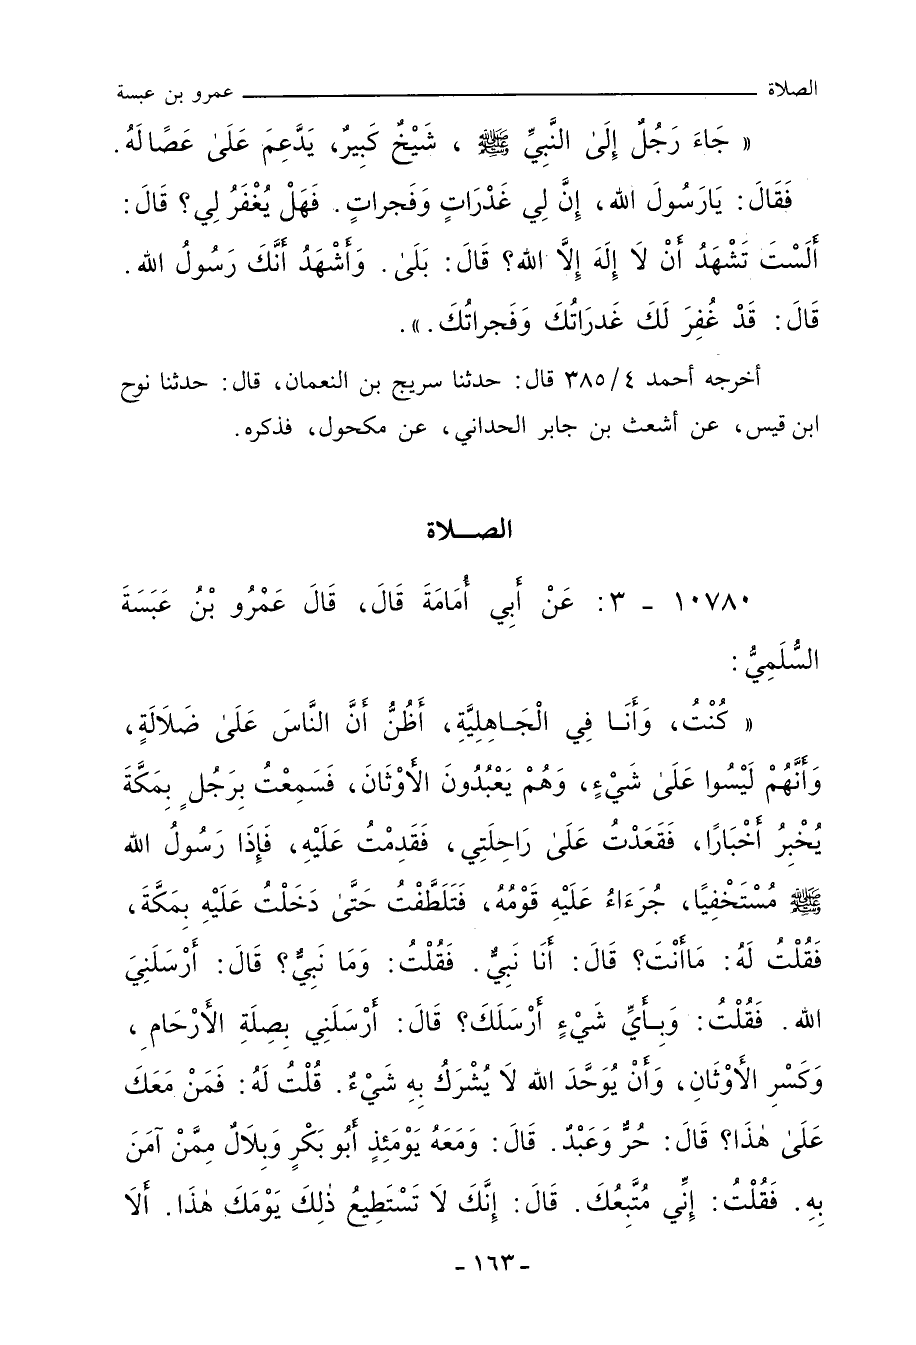 الصلاة ـــــــــ عمرو بن عبسة
« جَاءَ رَجُلٌ إِلَىٰ النَّبِيِّ ﷺ ، شَيْخٌ كَبِيرٌ، يَدَّعِمَ عَلَىٰ عَصًا لَهُ.
فَقَالَ: يَارَسُولَ الله، إِنَّ لِي غَدْرَاتٍ وَفَجراتٍ. فَهَلْ يُغْفَرُ لِي؟ قَالَ:
أَلَسْتَ تَشْهَدُ أَنْ لَا إِلَهَ إِلَّا الله؟ قَالَ: بَلَىٰ. وَأَشْهَدُ أَنَّكَ رَسُولُ الله.
قَالَ: قَدْ غُفِرَ لَكَ غَدرَاتُكَ وَفَجراتُكَ.».
أخرجه أحمد ٣٨٥/٤ قال: حدثنا سريج بن النعمان، قال: حدثنا نوح
ابن قيس، عن أشعث بن جابر الحداني، عن مكحول، فذكره.
الصـــلاة
١٠٧٨٠ - ٣: عَنْ أَبِي أُمَامَةَ قَالَ، قَالَ عَمْرُو بْنُ عَبَسَةَ
السُّلَمِيُّ:
« كُنْتُ، وَأَنَا فِي الْجَاهِلِيَّةِ، أَظُنُّ أَنَّ النَّاسَ عَلَىٰ ضَلَالَةٍ،
وَأَنَّهُمْ لَيْسُوا عَلَىٰ شَيْءٍ، وَهُمْ يَعْبُدُونَ الأَوْثَانَ، فَسَمِعْتُ بِرَجُلٍ بِمَكَّةَ
يُخْبِرُ أَخْبَارًا، فَقَعَدْتُ عَلَىٰ رَاحِلَتِي، فَقَدِمْتُ عَلَيْهِ، فَإِذَا رَسُولُ الله
ﷺ مُسْتَخْفِيًا، جُرَءَاءُ عَلَيْهِ قَوْمُهُ، فَتَلَطَّفْتُ حَتَّىٰ دَخَلْتُ عَلَيْهِ بِمَكَّةَ،
فَقُلْتُ لَهُ: مَاأَنْتَ؟ قَالَ: أَنَا نَبِيٌّ. فَقُلْتُ: وَمَا نَبِيٌّ؟ قَالَ: أَرْسَلَنِيَ
الله. فَقُلْتُ: وَبِأَيِّ شَيْءٍ أَرْسَلَكَ؟ قَالَ: أَرْسَلَنِي بِصِلَةِ الأَرْحَامِ،
وَكَسْرِ الأَوْثَانِ، وَأَنْ يُوَحَّدَ الله لَا يُشْرَكُ بِهِ شَيْءٌ. قُلْتُ لَهُ: فَمَنْ مَعَكَ
عَلَىٰ هٰذَا؟ قَالَ: حُرٌّ وَعَبْدٌ. قَالَ: وَمَعَهُ يَوْمَئِذٍ أَبُو بَكْرٍ وَبِلَالٌ مِمَّنْ آمَنَ
بِهِ. فَقُلْتُ: إِنِّي مُتَّبِعُكَ. قَالَ: إِنَّكَ لَا تَسْتَطِيعُ ذٰلِكَ يَوْمَكَ هٰذَا. أَلَا
- ١٦٣ -